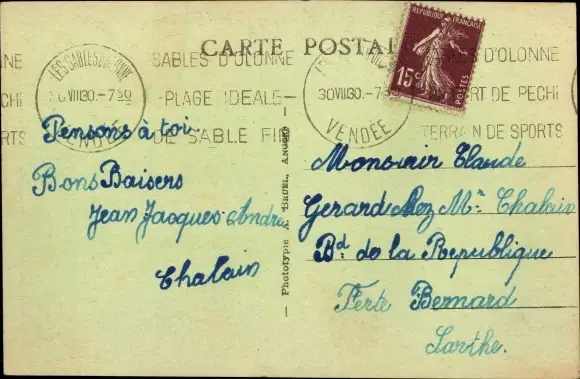 CARTE POSTALE
REPUBLIQUE FRANÇAISE
15c
POSTES
LES SABLES D'OLONNE
30 VII 30 - 7 30
VENDÉE
SABLES D'OLONNE
-PLAGE IDEALE-
DE SABLE FIN
NE
PECHE
RTS
30 VII 30 - 7
VENDÉE
S D'OLONNE
RT DE PECH
TERRAIN DE SPORTS
Pensons à toi
Bons Baisers
Jean Jacques Andre
Chalain
Phototypie A. BRUEL, ANGERS
Monsieur Claude
Gerard chez Mr Chalain
Bd de la Republique
Ferte Bernard
Sarthe.